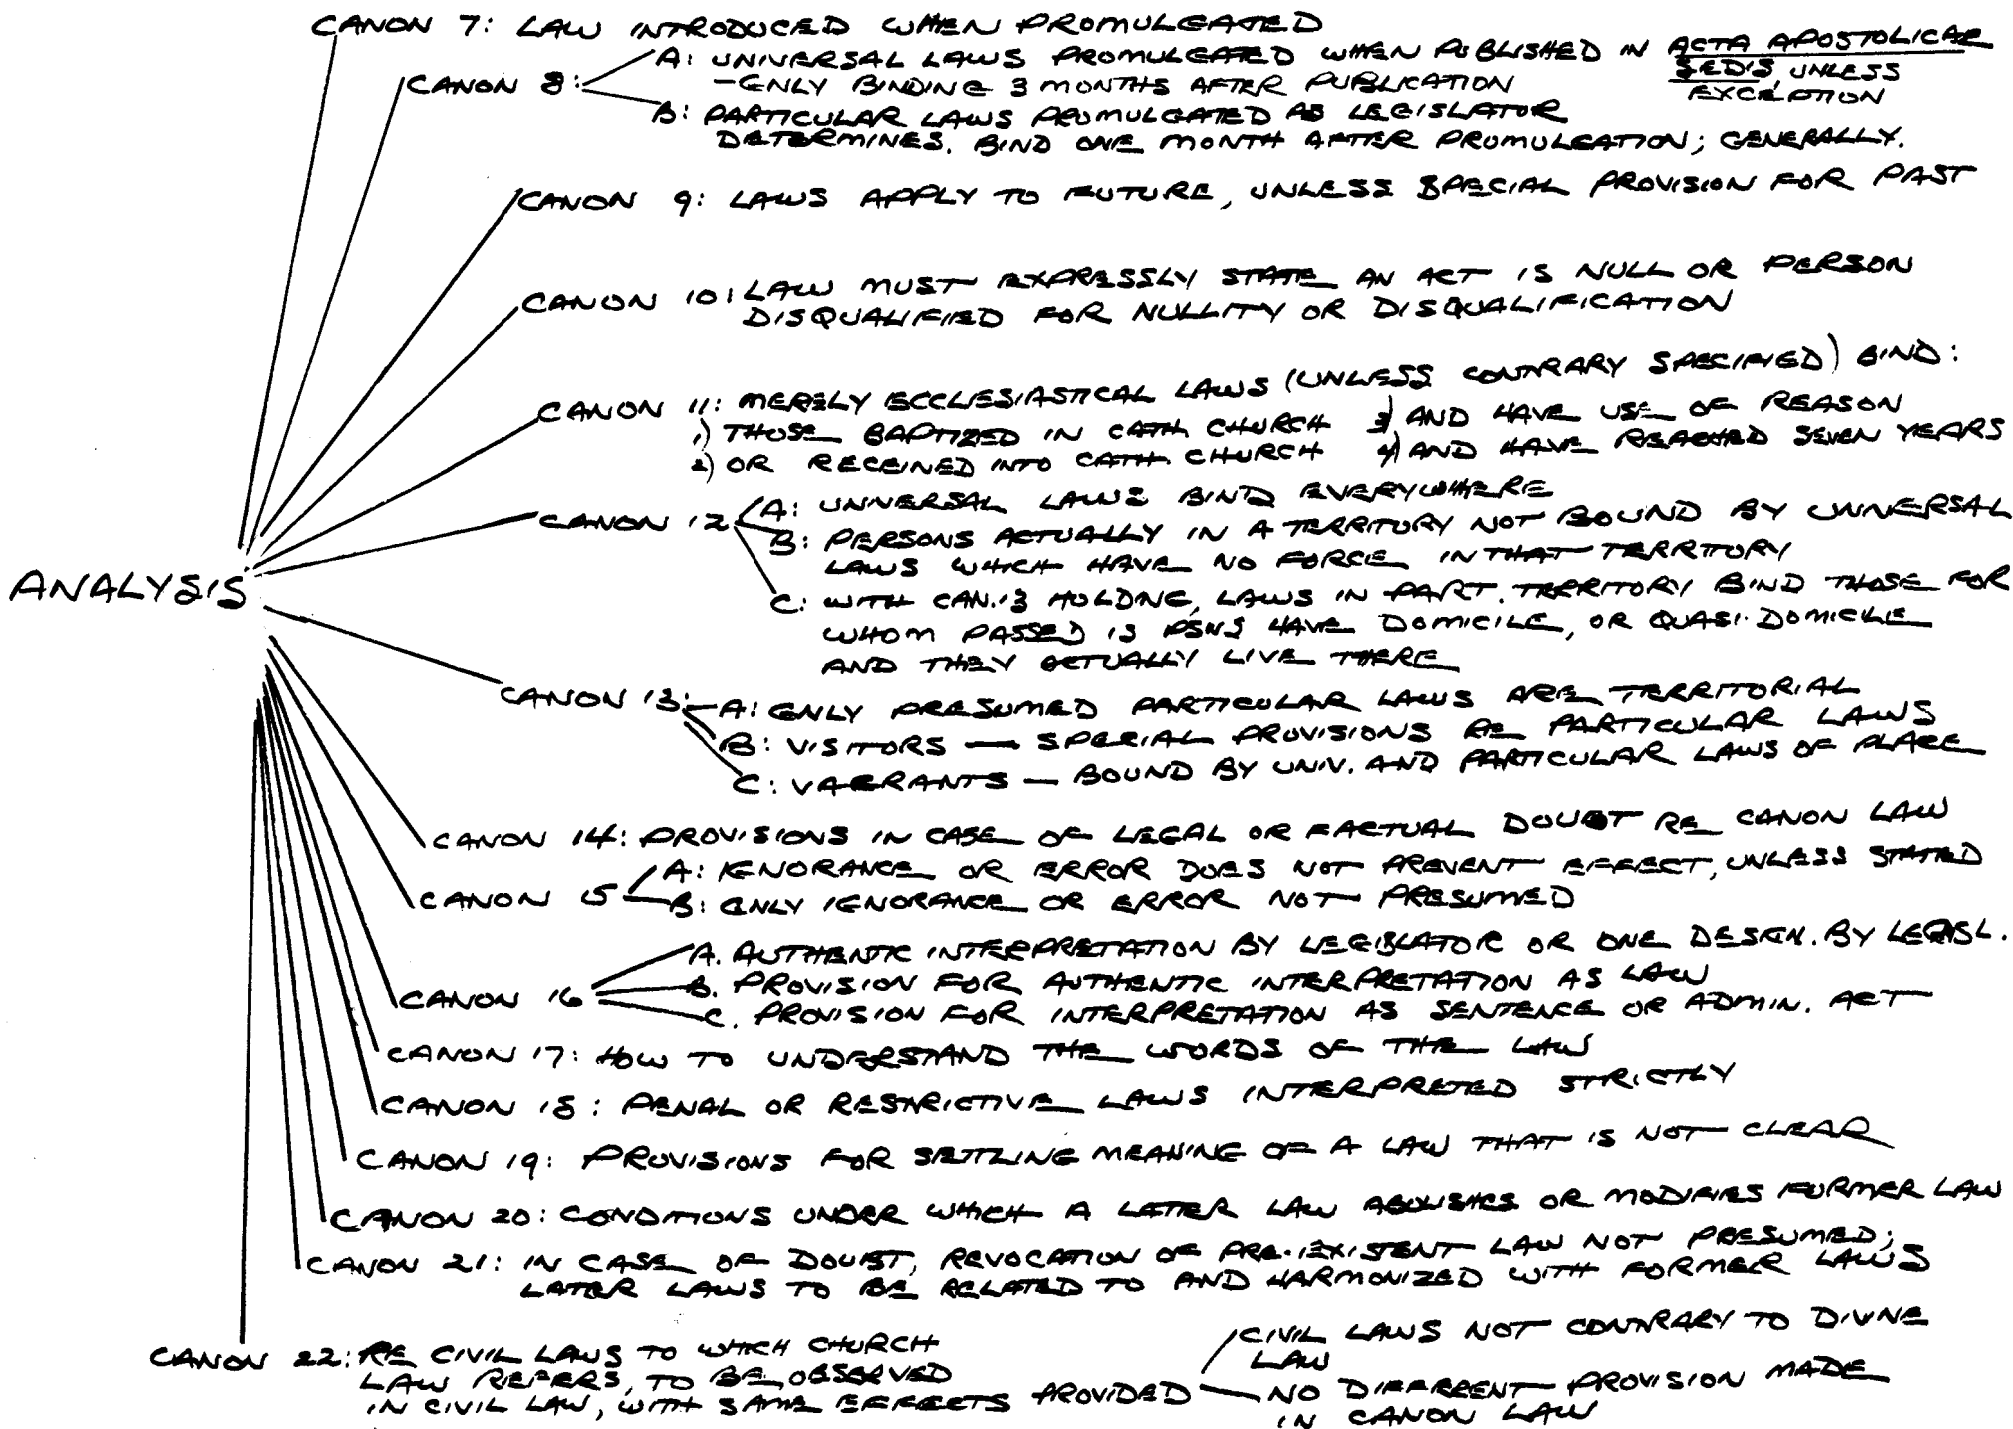 CANON 7: LAW INTRODUCED WHEN PROMULGATED
CANON 8:
A: UNIVERSAL LAWS PROMULGATED WHEN PUBLISHED IN ACTA APOSTOLICAE
SEDIS UNLESS
EXCEPTION
-ONLY BINDING 3 MONTHS AFTER PUBLICATION
B: PARTICULAR LAWS PROMULGATED AS LEGISLATOR
DETERMINES. BIND ONE MONTH AFTER PROMULGATION; GENERALLY.
CANON 9: LAWS APPLY TO FUTURE, UNLESS SPECIAL PROVISION FOR PAST
CANON 10: LAW MUST EXPRESSLY STATE AN ACT IS NULL OR PERSON
DISQUALIFIED FOR NULLITY OR DISQUALIFICATION
CANON 11: MERELY ECCLESIASTICAL LAWS (UNLESS CONTRARY SPECIFIED) BIND:
1) THOSE BAPTIZED IN CATH. CHURCH 3) AND HAVE USE OF REASON
2) OR RECEIVED INTO CATH. CHURCH 4) AND HAVE REACHED SEVEN YEARS
CANON 12
A: UNIVERSAL LAWS BIND EVERYWHERE
B: PERSONS ACTUALLY IN A TERRITORY NOT BOUND BY UNIVERSAL
LAWS WHICH HAVE NO FORCE IN THAT TERRITORY
C: WITH CAN. 13 HOLDING, LAWS IN PART. TERRITORY BIND THOSE FOR
WHOM PASSED IS PSNS HAVE DOMICILE, OR QUASI-DOMICILE
AND THEY ACTUALLY LIVE THERE
ANALYSIS
CANON 13:
A: ONLY PRESUMED PARTICULAR LAWS ARE TERRITORIAL
B: VISITORS — SPECIAL PROVISIONS RE PARTICULAR LAWS
C: VAGRANTS — BOUND BY UNIV. AND PARTICULAR LAWS OF PLACE
CANON 14: PROVISIONS IN CASE OF LEGAL OR FACTUAL DOUBT RE CANON LAW
CANON 15
A: IGNORANCE OR ERROR DOES NOT PREVENT EFFECT, UNLESS STATED
B: ONLY IGNORANCE OR ERROR NOT PRESUMED
CANON 16
A. AUTHENTIC INTERPRETATION BY LEGISLATOR OR ONE DESIGN. BY LEGISL.
B. PROVISION FOR AUTHENTIC INTERPRETATION AS LAW
C. PROVISION FOR INTERPRETATION AS SENTENCE OR ADMIN. ACT
CANON 17: HOW TO UNDERSTAND THE WORDS OF THE LAW
CANON 18: PENAL OR RESTRICTIVE LAWS INTERPRETED STRICTLY
CANON 19: PROVISIONS FOR SETTLING MEANING OF A LAW THAT IS NOT CLEAR
CANON 20: CONDITIONS UNDER WHICH A LATER LAW ABOLISHES OR MODIFIES FORMER LAW
CANON 21: IN CASE OF DOUBT, REVOCATION OF PRE-EXISTENT LAW NOT PRESUMED;
LATER LAWS TO BE RELATED TO AND HARMONIZED WITH FORMER LAWS
CANON 22: RE CIVIL LAWS TO WHICH CHURCH
LAW REFERS, TO BE OBSERVED
IN CIVIL LAW, WITH SAME EFFECTS PROVIDED
CIVIL LAWS NOT CONTRARY TO DIVINE
LAW
NO DIFFERENT PROVISION MADE
IN CANON LAW